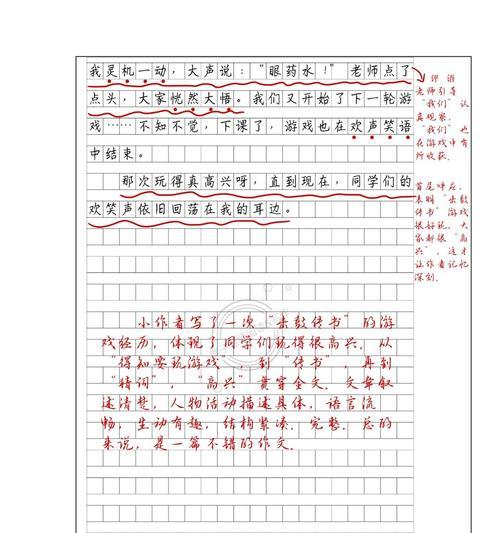 我灵机一动，大声说：“眼药水！”老师点了
点头，大家恍然大悟。我们又开始了下一轮游
戏……不知不觉，下课了，游戏也在欢声笑语
中结束。
那次玩得真高兴呀，直到现在，同学们的
欢笑声依旧回荡在我的耳边。
评语
老师引导
“我们”认
真观察，
“我们”也
在游戏中有
所收获。
首尾呼应，
表明“击鼓
传书”游戏
很好玩，大
家都很“高
兴”，这才
让作者记忆
深刻。
小作者写了一次“击鼓传书”的游
戏经历，体现了同学们玩得很高兴。从
“得知要玩游戏”，到“传书”，再到
“猜词”，“高兴”贯穿全文。文章叙
述清楚，人物活动描述具体，语言流
畅，生动有趣，结构紧凑、完整。总的
来说，是一篇不错的作文。